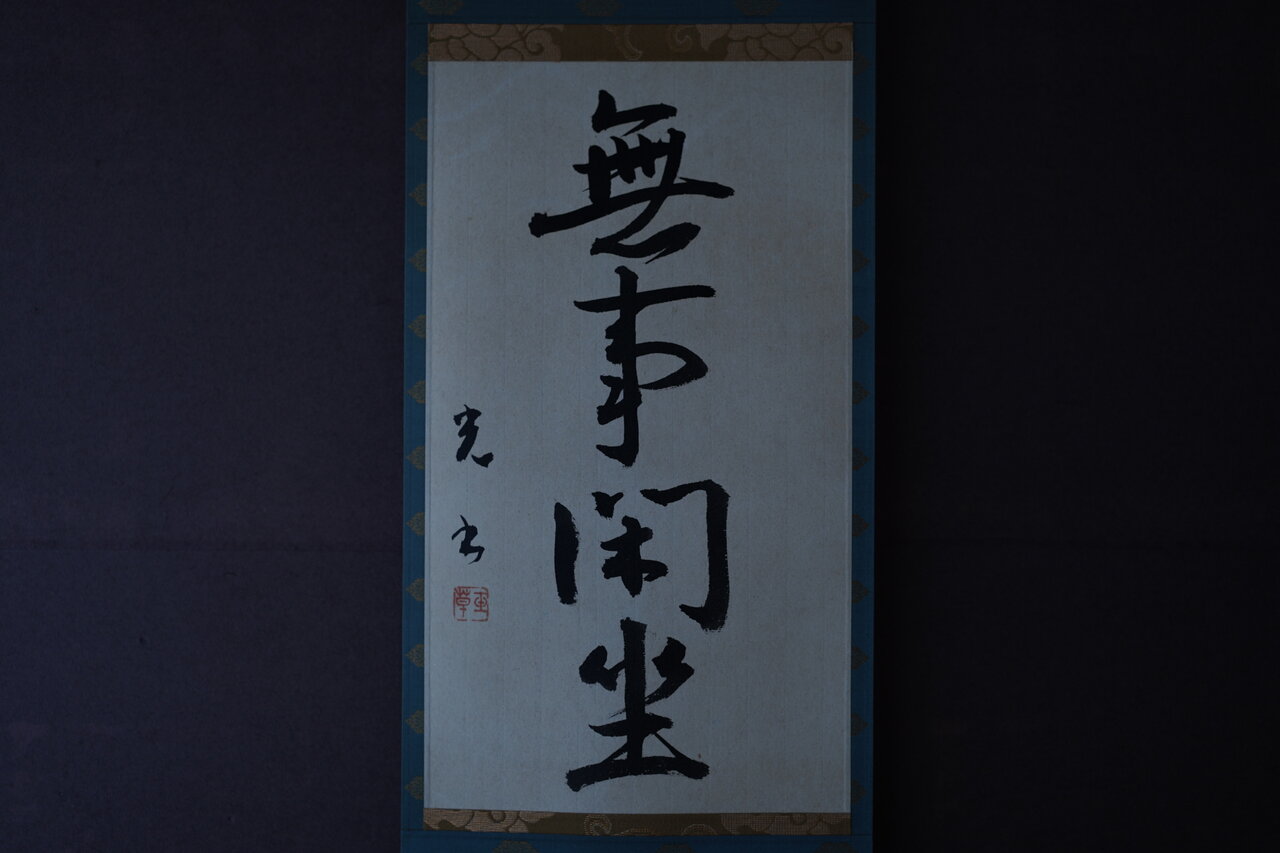 無事閑坐
光书